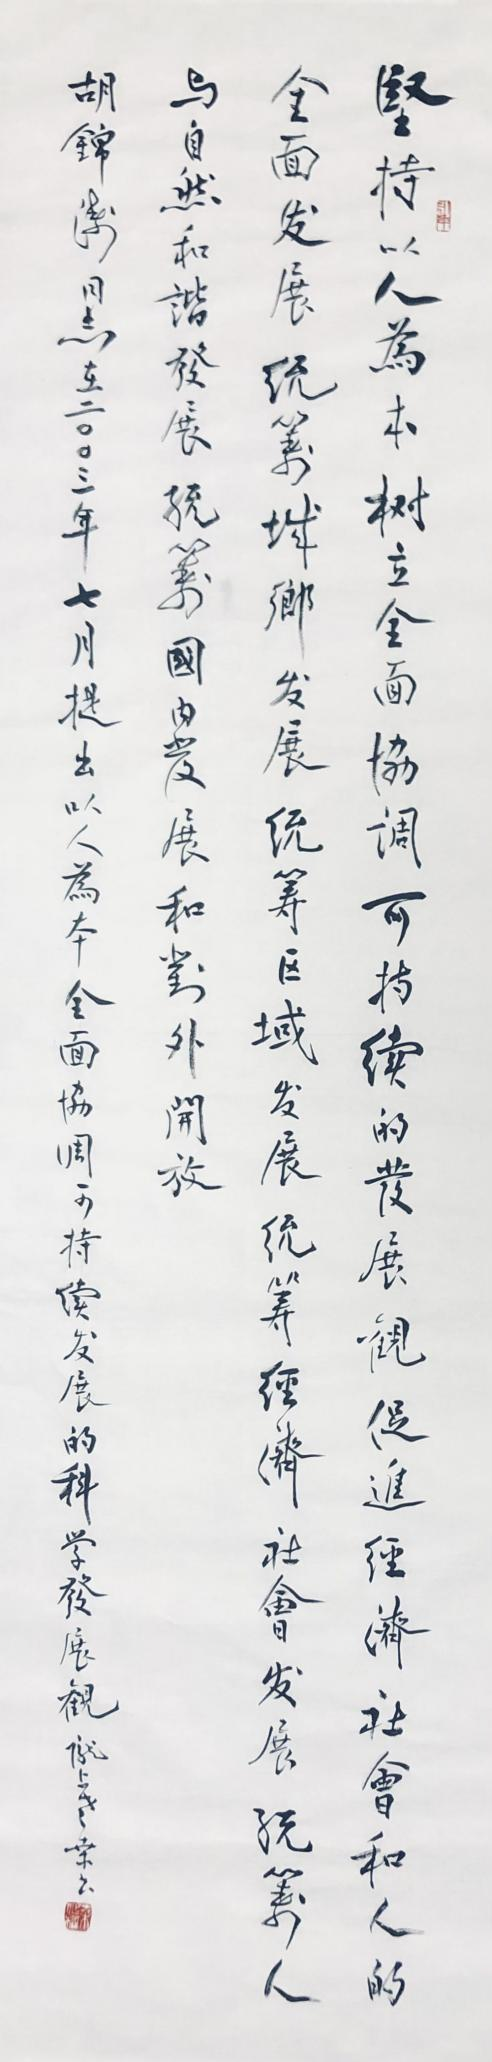 堅持以人為本树立全面協調可持續的發展觀促進經濟社會和人的
全面发展統籌城鄉发展統筹区域发展統筹經濟社會发展統籌人
与自然和諧發展統籌國内發展和對外開放
胡錦濤同志在二〇〇三年七月提出以人為本全面協調可持續发展的科学發展觀隴上